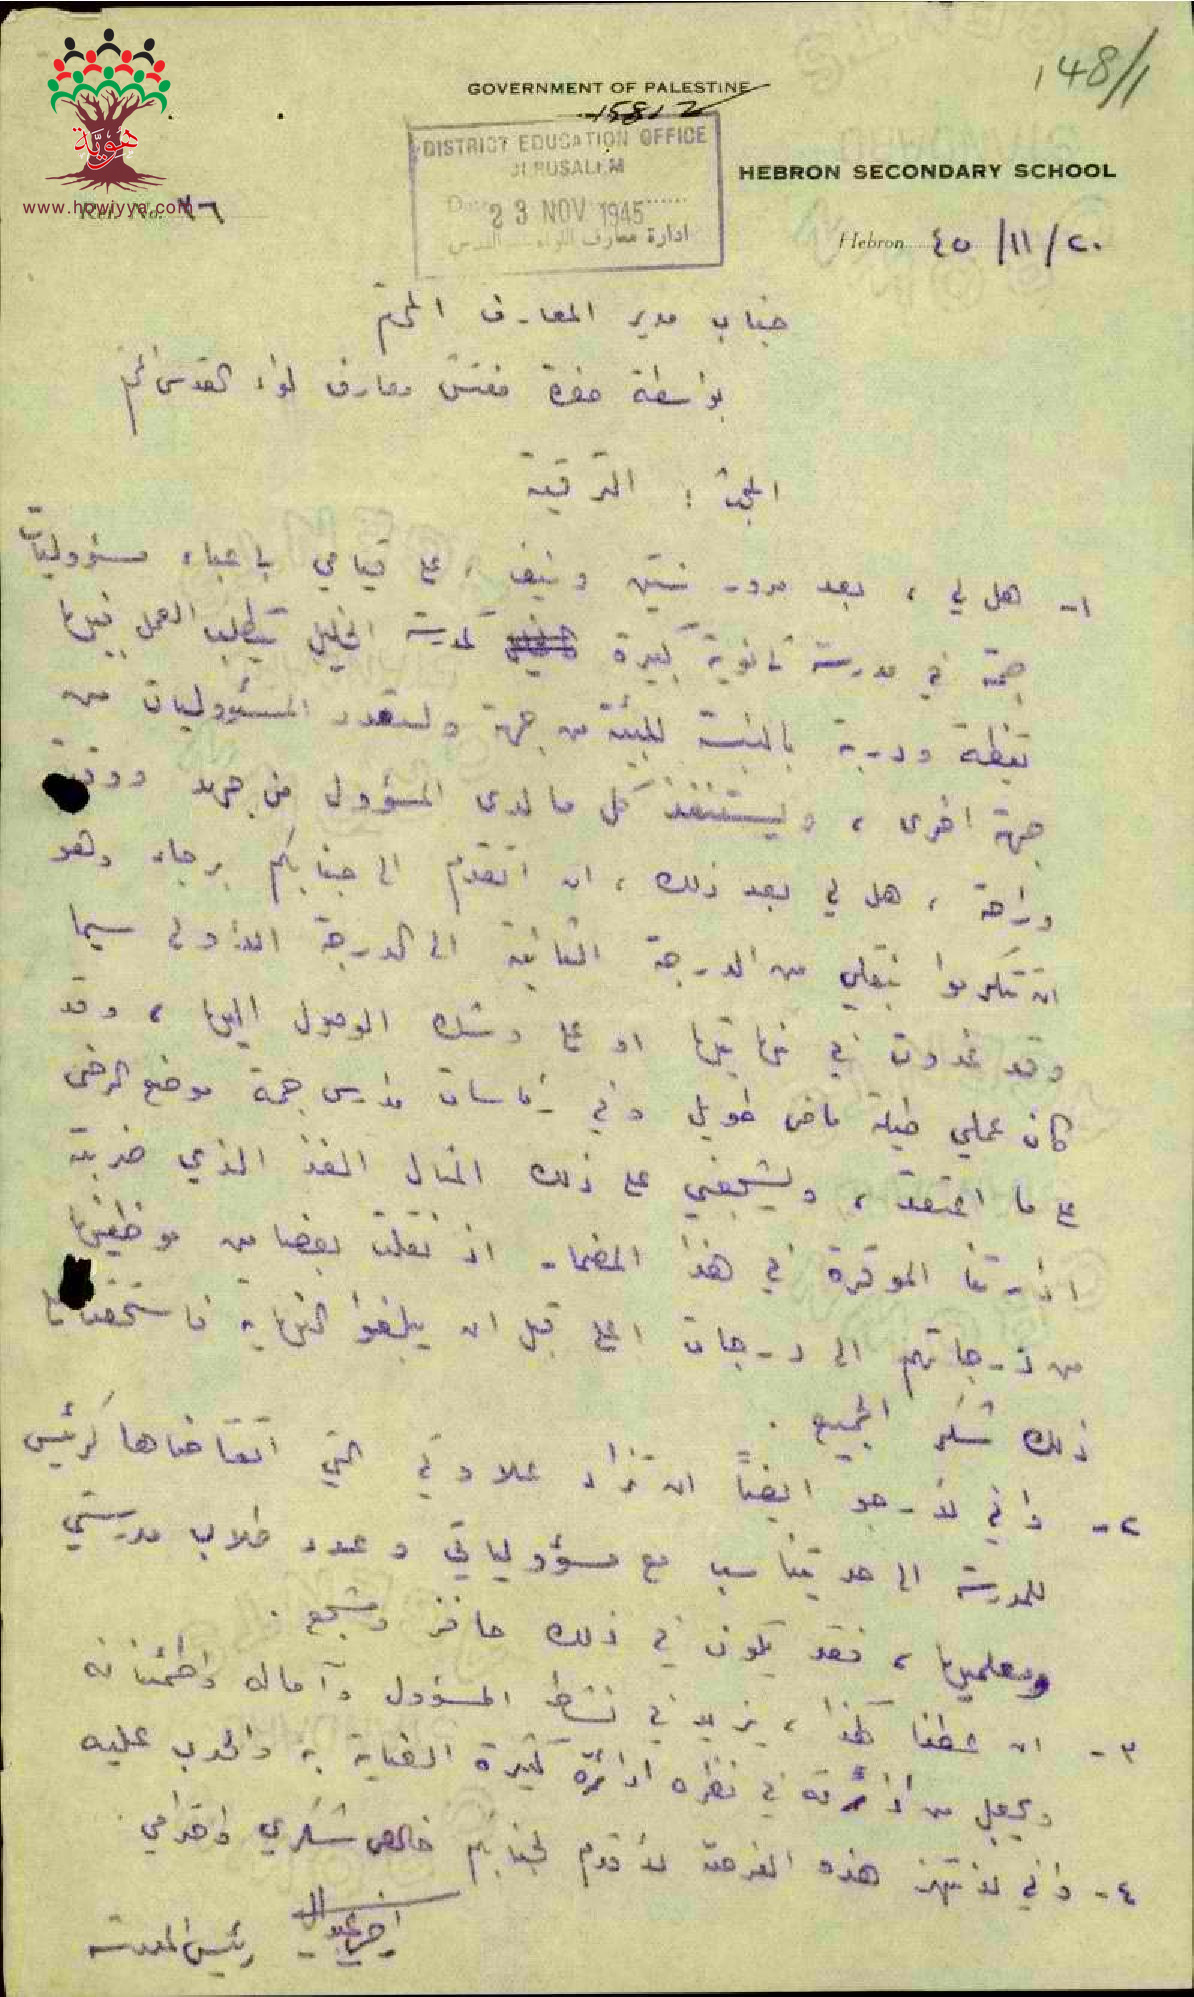 148/1
GOVERNMENT OF PALESTINE
15812
DISTRICT EDUCATION OFFICE
JERUSALEM
HEBRON SECONDARY SCHOOL
هوية
www.howiyya.com
Ref. No. ٧٦
Date 23 NOV 1945
ادارة معارف اللواء القدس
Hebron ٢٠/١١/٤٥
جناب مدير المعارف المحترم
بواسطة حضرة مفتش معارف لواء القدس المحترم
البحث : الترقية
١- هل لي ، بعد مرور سنتين ونيف ، على قيامي باعباء مسؤوليات
جمة في مدرسة ثانوية كبيرة كمدرسة الخليل يتطلب العمل فيها
يقظة ودربة بالنسبة للبيئة من جهة ولتعدد المسؤوليات من
جهة اخرى ، ويستنفذ كل ما لدى المسؤول من جهد ووقت
وراحة ، هل لي بعد ذلك ، ان اتقدم الى جنابكم برجاء وهو
ان تتكرموا بنقلي من الدرجة الثانية الى الدرجة الاولى سيما
وقد غدوت في نهايتها او على وشك الوصول اليها ، وقد
كان عملي طيلة ماض طويل وفي رئاسات مدارس جمة موضع الرضى
على ما اعتقد ، ويشجعني على ذلك المثال الفذ الذي ضربته
ادارتنا الموقرة في هذا المضمار اذ نقلت بعضا من موظفيها
من درجاتهم الى درجات اعلى قبل ان يبلغوا النهاية فاستحقت على
ذلك شكر الجميع .
٢- واني لارجو ايضاً ان تزاد علاوتي التي اتقاضاها كرئيس
للمدرسة الى حد يتناسب مع مسؤولياتي وعدد طلاب مدرستي
ومعلميها ، فقد يكون في ذلك حافز ومشجع .
٣- ان عطفا كهذا ، يزيد في نشاط المسؤول وآماله واطمئنانه
ويجعل من ادارته في نظره ادارة كثيرة العناية به والحدب عليه
٤- واني لانتهز هذه الفرصة لأقدم لجنابكم خالص شكري واحترامي .
رئيس المدرسة